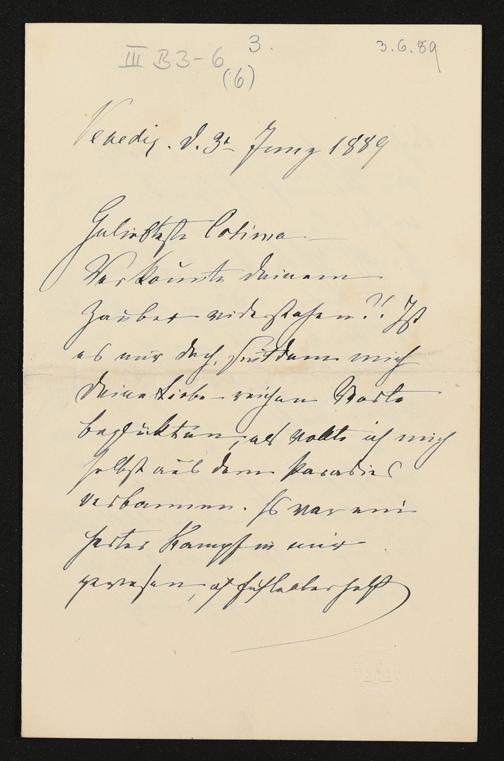 3.
III B3-6
(6)
3.6.89
Venedig. d. 3t Juny 1889
Geliebteste Cosima
Wer könnte deinem
Zauber widerstehen?! Ist
es mir doch, seitdem mich
deine Liebe reichen Worte
beglückten, als wollte ich mich
selbst aus dem Paradies
verbannen. Es war ein
harter Kampf in mir
gewesen, ich fühle aber